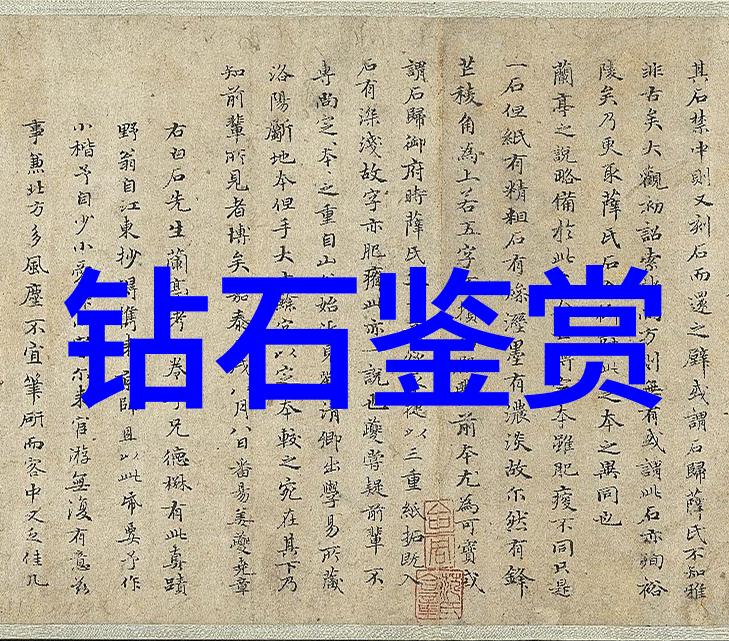 其石禁中則又刻石而還之壁或謂石歸薛氏不知雅
非古矣大觀初詔索方則無有或謂此石亦殉裕
陵矣乃更取薛氏石入此之本之異同也
蘭亭之說略備於此本雖肥瘦不同只是
一石但紙有精粗石有燥溼墨有濃淡故尔然有鋒
芒稜角為上若五字損前本尤為可寶或
謂石歸御府時薛氏以三重紙拓既入
石有深淺故字亦肥瘦此亦一說也夔嘗疑前輩不
專尚定本〻之重自山谷始清卿出學易所藏
洛陽斷地本但手大字以定本較之宛在其下乃
知前輩所見者博矣嘉泰八月八日番昜姜夔堯章
右白石先生蘭亭考卷兄德楙有此真蹟
野翁自江東抄得且以此帋要予作
小楷予自少小受來官游無復有意茲
事兼北方多風塵不宜筆硏而客中又乏佳几
钻石鉴赏